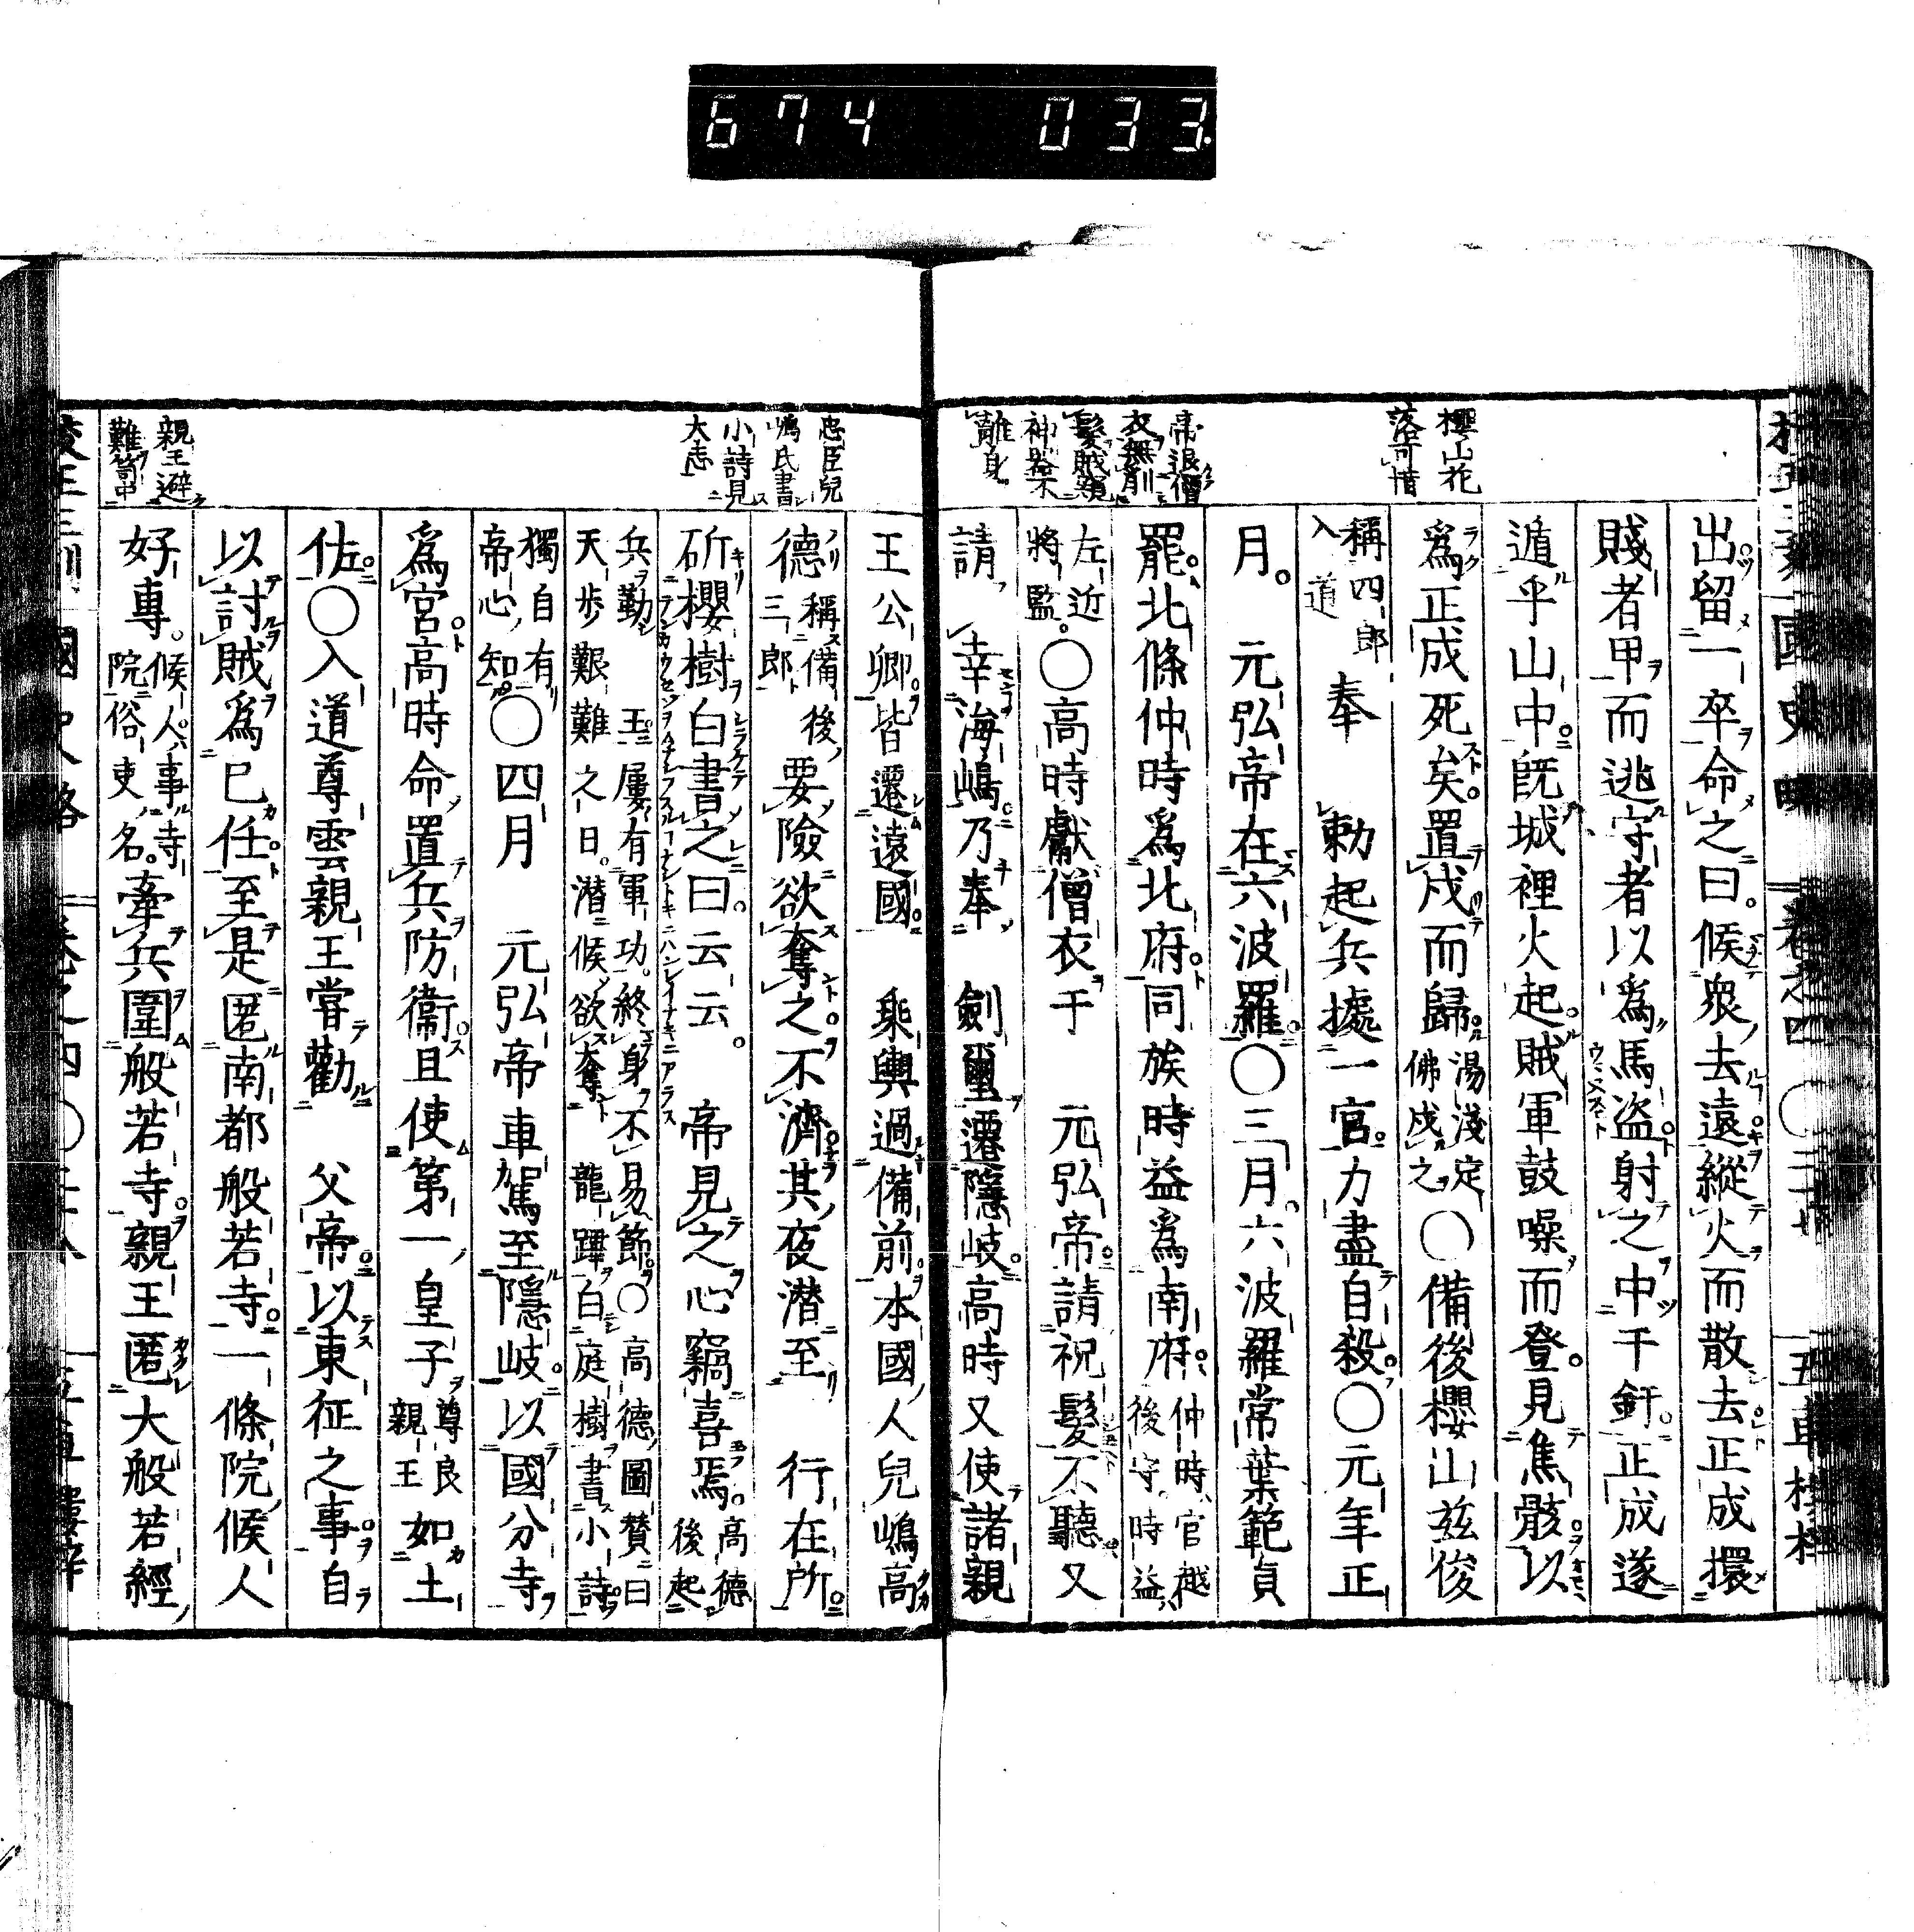 674 033
櫻山花
落可惜
帝退僧
衣無削
髮賊窺
神器不
離身
出留一卒命之曰候衆去遠縱火而散去正成擐
賤者甲而逃守者以爲馬盜射之中干釬正成遂
遁乎山中旣城裡火起賊軍鼓噪而登見焦骸以
爲正成死矣置戍而歸湯淺定佛戍之〇備後櫻山茲俊
稱四郎入道奉 勅起兵據一宮力盡自殺〇元年正
月 元弘帝在六波羅〇三月六波羅常葉範貞
罷北條仲時爲北府同族時益爲南府仲時官越後守時益
左近將監〇高時獻僧衣于 元弘帝請祝髮不聽又
請 幸海嶋乃奉 劍璽遷隱岐高時又使諸親
忠臣兒
嶋氏書
小詩見
大志
親王避
難笥中
王公卿皆遷遠國 乘輿過備前本國人兒嶋高
德稱備後三郎要險欲奪之不濟其夜潛至 行在所
斫櫻樹白書之曰云云 帝見之心竊喜焉高德後起
兵勤 王屢有軍功終身不易節〇高德圖贊曰
天步艱難之日潛候欲奪 龍蹕白庭樹書小詩
獨自有帝心知〇四月 元弘帝車駕至隱岐以國分寺
爲宮高時命置兵防衞且使第一皇子尊良親王如土
佐〇入道尊雲親王嘗勸 父帝以東征之事自
以討賊爲己任至是匿南都般若寺一條院候人
好專候人事寺院俗吏名牽兵圍般若寺親王匿大般若經